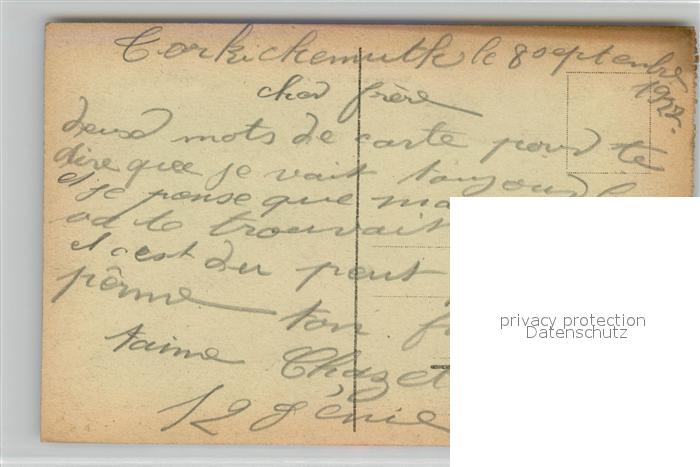 le 8 septembre
1922.
cher frère
deux mots de carte pour te
dire que je vait toujour
et je pense que ma
te trouvait
et c'est du
ton
t'aime Chazet
12 génie
privacy protection
Datenschutz